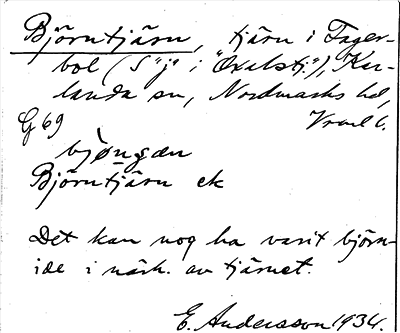 Björntjärn, tjärn i Fager-
bol (S "j" i "Oxelstj."), Kar-
landa sn, Nordmarks hd,
G 69 Vrml l.
bjøngæn
Björntjärn ek
Det kan nog ha varit björn-
ide i närh. av tjärnet.
E. Andersson 1934.